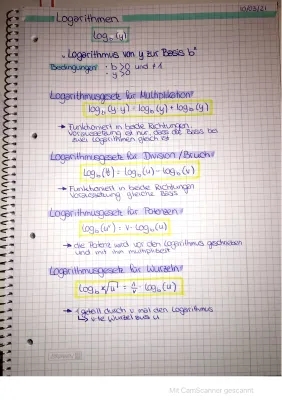 10/03/21
Logarithmen
log_b(y)
"Logarithmus von y zur Basis b"
Bedingungen: · b > 0 und ≠ 1
· y > 0
Logarithmusgesetz für Multiplikation:
log_b(y·y) = log_b(y) + log_b(y)
→ Funktioniert in beide Richtungen,
Voraussetzung ist nur, dass die Basis bei
zwei Logarithmen gleich ist
Logarithmusgesetz für Division/Bruch:
log_b(u/v) = log_b(u) - log_b(v)
→ Funktioniert in beide Richtungen
Voraussetzung gleiche Basis
Logarithmusgesetz für Potenzen:
log_b(u^v) = v · log_b(u)
→ die Potenz wird vor den Logarithmus geschoben
und mit ihm multipliziert
Logarithmusgesetz für Wurzeln:
log_b ᵛ√u = 1/v · log_b(u)
→ 1 geteilt durch v mal den Logarithmus
↳ v-te Wurzel aus u
Mit CamScanner gescannt